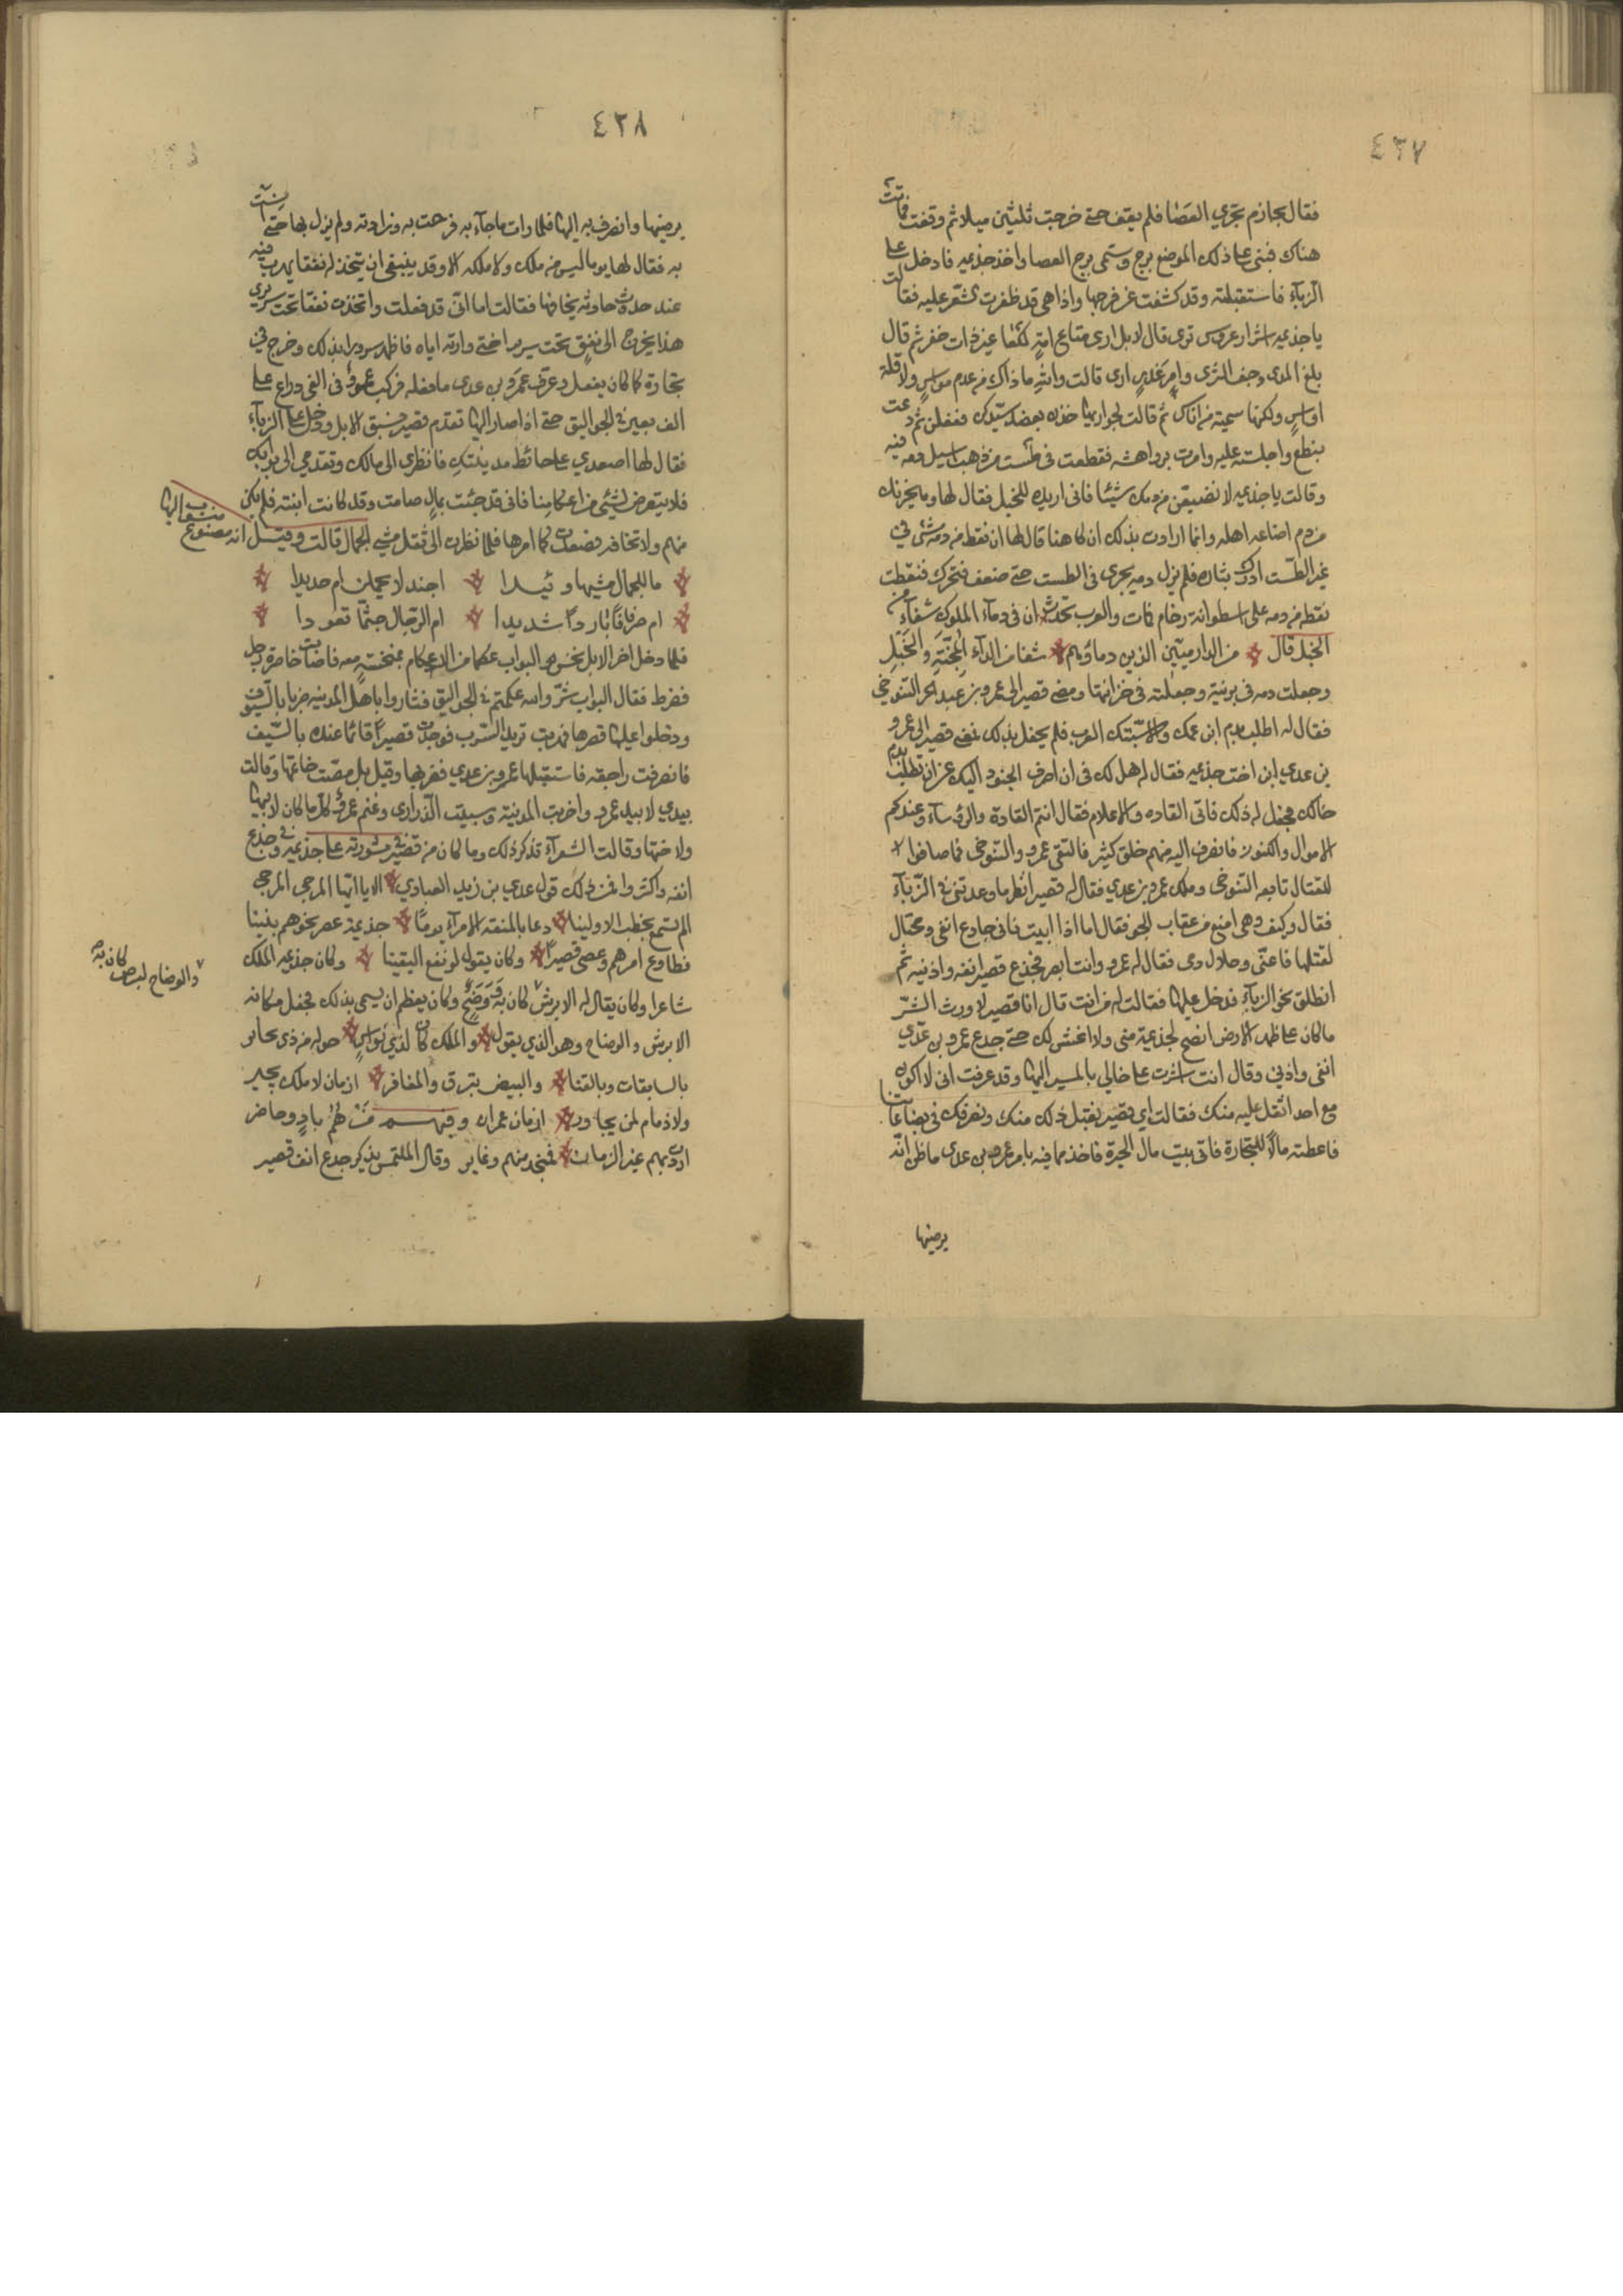 ٤٣٧
فقال بجازم تجري العصا فلم يقف حتى خرجت ثلثين ميلا ثم وقفت فماتت
هناك فبنى على ذلك الموضع برج وسمى برج العصا واخذ جذيمه فادخل على
الزبآء فاستقبلته وقد كشفت عن فرجها واذا هى قد ظفرت الشعر عليه فقالت
يا جذيمه اشوار عروس ترى قال لا بل ارى متاع امةٍ لكعا غير ذات خفر ثم قال
بلغ المدى وجف الثرى وامر غدرٍ ارى قالت والله ما ذاك من عدم مواسٍ ولا قلة
اواسٍ ولكنها سيمة من اناس ثم قالت لجواريها خذن بعضد سيدكن ففعلن ثم دعت
بنطع واجلسته عليه وامرت برواهشه فقطعت فى طست من ذهب اسيل دمه فيه
وقالت يا جذيمه لا تضيعن من دمك شيئا فانى اريده للخبل فقال لها وما يحزنك
من دم اضاعه اهله وانما ارادت بذلك ان كاهنا قال لها ان نقط من دمه شئ فى
غير الطست ادرك بثاره فلم يزل دمه يجرى فى الطست حتى ضعف فتحرك فنقطت
نقطه من دمه على اسطوانة رخام فمات والعرب تحدث ان فى دمآء الملوك شفآء من
الخبل قال من الدارميين الذين دماؤهم شفا من الدآء المجنة والخبل
وجعلت دمه فى برنية وجعلته فى خزانتها ومضى قصير الى عمرو بن عبد الجن التنوخى
فقال له اطلب بدم ابن عمك والا سبتك العرب فلم يحفل بذلك فمضى قصير الى عمرو
بن عدي ابن اخت جذيمه فقال له هل لك فى ان اصرف الجنود اليك عن ان تطلب بدم
خالك فجعل له ذلك فاتى القاده والاعلام فقال انتم القادة والرؤسآء وعندكم
الاموال والكنوز فانصرف اليه منهم خلق كثير فالتقى عمرو والتنوخى فما صافوا
للقتال تابعه التنوخى وملك عمرو بن عدي فقال له قصير انظر ما وعدتنى فى الزبآء
فقال وكيف وهى امنع من عقاب الجو فقال اما اذا ابيت فانى جادع انفى ومحتال
لقتلها فاعنى وحلاك دمى فقال له عمرو وانت ابصر فجدع قصير انفه واذنيه ثم
انطلق نحو الزبآء فدخل عليها فقالت له من انت قال انا قصير لا ورب الشر
ما كان على ظهر الارض انصح لجذيمة منى ولا اغش لك حتى جدع عمرو بن عدي
انفى واذنى وقال انت اشرت على خالي بالمسير اليها وقد عرفت انى لا اكون
مع احد اثقل عليه منك فقالت اي قصير نقبل ذلك منك ونصرفك فى بضاعاتنا
فاعطته مالاً للتجارة فاتى بيت مال الحيرة فاخذ مما فيه بامر عمرو بن عدى ما ظن انه
يرضيها
٤٣٨
يرضيها وانصرف به اليها فلما رات ما جآء به فرحت به وزادته ولم يزل بها حتى انست
به فقال لها يوما ليس من ملك ولا ملكه الا وقد ينبغى ان يتخذ له نفقا يهرب فيه
عند حدوث حادثه يخافها فقالت اما انى قد فعلت واتخذت نفقا تحت سريرى
هذا يخرج الى نفق تحت سرير اختى وارته اياه فاظهر سرورا بذلك وخرج فى
تجارة كما كان يفعل وعرف عمرو بن عدى ما فعله فركب عمرو فى الفى دراع على
الف بعير فى الجواليق حتى اذا صار اليها تقدم قصير فسبق الابل ودخل على الزبآء
فقال لها اصعدي على حائط مدينتك فانظرى الى مالك وتقدمى الى بوابك
فلا يتعرض لشئ من اعكامنا فانى قد جئت بمال صامت وقد كانت ابنته فلم يكن
منهم ولا تخافه فصعدت كما امرها فلما نظرت الى ثقل مشى الجمال قالت وقيل انه مصنوع
منسوب اليها
ما للجمال مشيها وئيدا اجندلا يحملن ام حديدا
ام صرفانا باردا شديدا ام الرجال جثما قعودا
فلما دخل اخر الابل نخس البواب عكما من الاعكام بمنخسةٍ معه فاصابت خاصرة رجل
فضرط فقال البواب شر والله عكمتم فى الجواليق فثاروا باهل المدينه ضربا بالسيف
ودخلوا عليها قصرها فهربت تريد السرب فوجدت قصيراً قائما عنده بالسيف
فانصرفت راجعه فاستقبلها عمرو بن عدي فضربها وقيل بل مصت خاتمها وقالت
بيدي لا بيد عمرو واخربت المدينة وسبيت الذرارى وغنم عمرو كل ما كان لابيها
ولاختها وقالت الشعرآء تذكر ذلك وما كان من قصير فى مشورته على جذيمة وفى جدع
انفه واكثروا فمن ذلك قول عدي بن زيد العبادي الا يا ايها المرجى المرجى
الم تسمع بخطب الاولينا دعا بالمنقه الامرآء يومًا جذيمة عصر نحوهم ينينا
فطاوع امرهم وعصى قصيراً وكان يقول لو نفع اليقينا وكان جذيمه الملك
شاعرا وكان يقال له الابرش كان به وضح وكان يعظم ان يسمى بذلك فجعل مكانه
والوضاح لبرص كان به
الابرش والوضاح وهو الذي يقول والملك كان لذي نواس حوله من ذى بحاير
بالسابقات وبالقنا والبيض تبرق والمغافر ازمان لا ملك يجير
ولا ذمام لمن يجاور ازمان عمران وفيهم مث لهم بادٍ وحاضر
اودى بهم غير الزمان فمنجد منهم وغاير وقال الملتمس يذكر جدع انف قصير